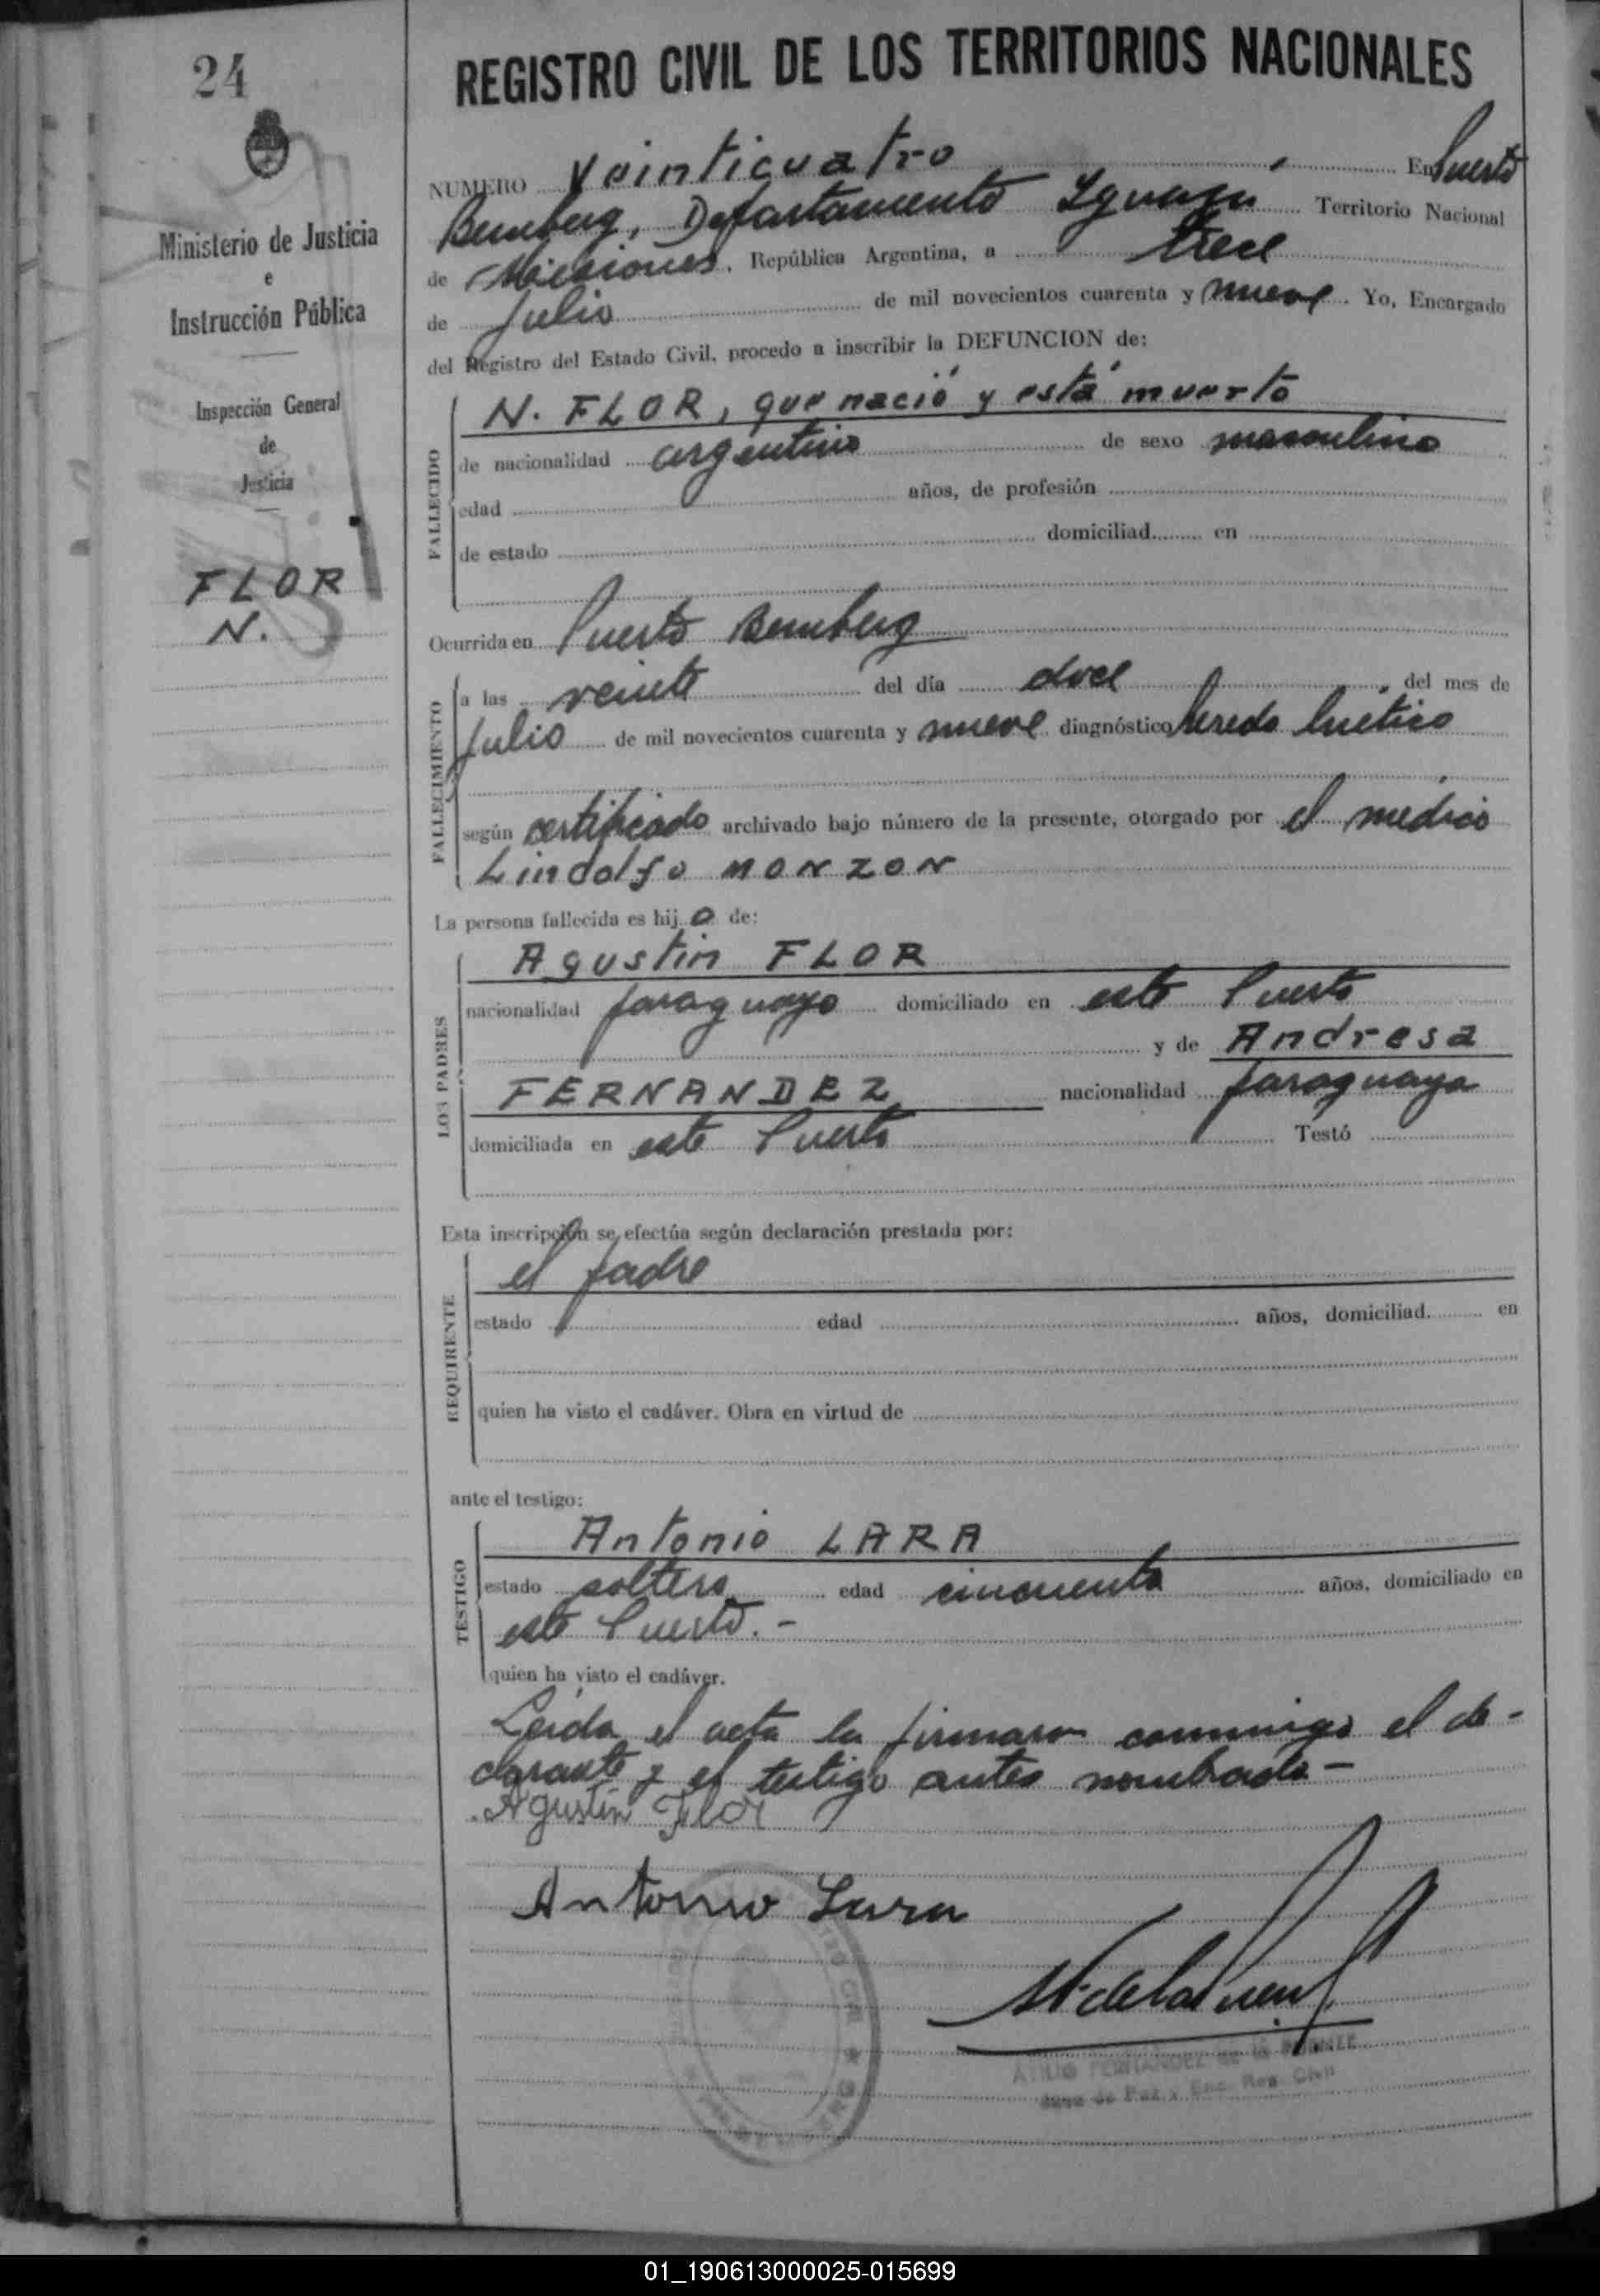 24
REGISTRO CIVIL DE LOS TERRITORIOS NACIONALES
NUMERO Veinticuatro En Puerto
Bemberg, Departamento Iguazú Territorio Nacional
de Misiones, República Argentina, a trece
de Julio de mil novecientos cuarenta y nueve. Yo, Encargado
del Registro del Estado Civil, procedo a inscribir la DEFUNCION de:
Ministerio de Justicia
e
Instrucción Pública
Inspección General
de
Justicia
FLOR
N.
FALLECIDO
N. FLOR, que nació y está muerto
de nacionalidad argentino de sexo masculino
edad años, de profesión
de estado domiciliad en
Ocurrida en Puerto Bemberg
FALLECIMIENTO
a las veinte del día doce del mes de
Julio de mil novecientos cuarenta y nueve diagnóstico heredo luético
según certificado archivado bajo número de la presente, otorgado por el médico
Lindolfo MONZON
La persona fallecida es hijo de:
LOS PADRES
Agustin FLOR
nacionalidad paraguayo domiciliado en este Puerto
y de Andresa
FERNANDEZ nacionalidad paraguaya
domiciliada en este Puerto Testó
Esta inscripción se efectúa según declaración prestada por:
REQUIRENTE
el padre
estado edad años, domiciliad en
quien ha visto el cadáver. Obra en virtud de
ante el testigo:
TESTIGO
Antonio LARA
estado soltero edad cincuenta años, domiciliado en
este Puerto.-
quien ha visto el cadáver.
Leida el acta la firmaron conmigo el de-
clarante y el testigo antes nombrado-
Agustin Flor
Antonio Lara
ATILIO FERNANDEZ de la PUENTE
Juez de Paz y Enc. Reg. Civil
01_190613000025-015699